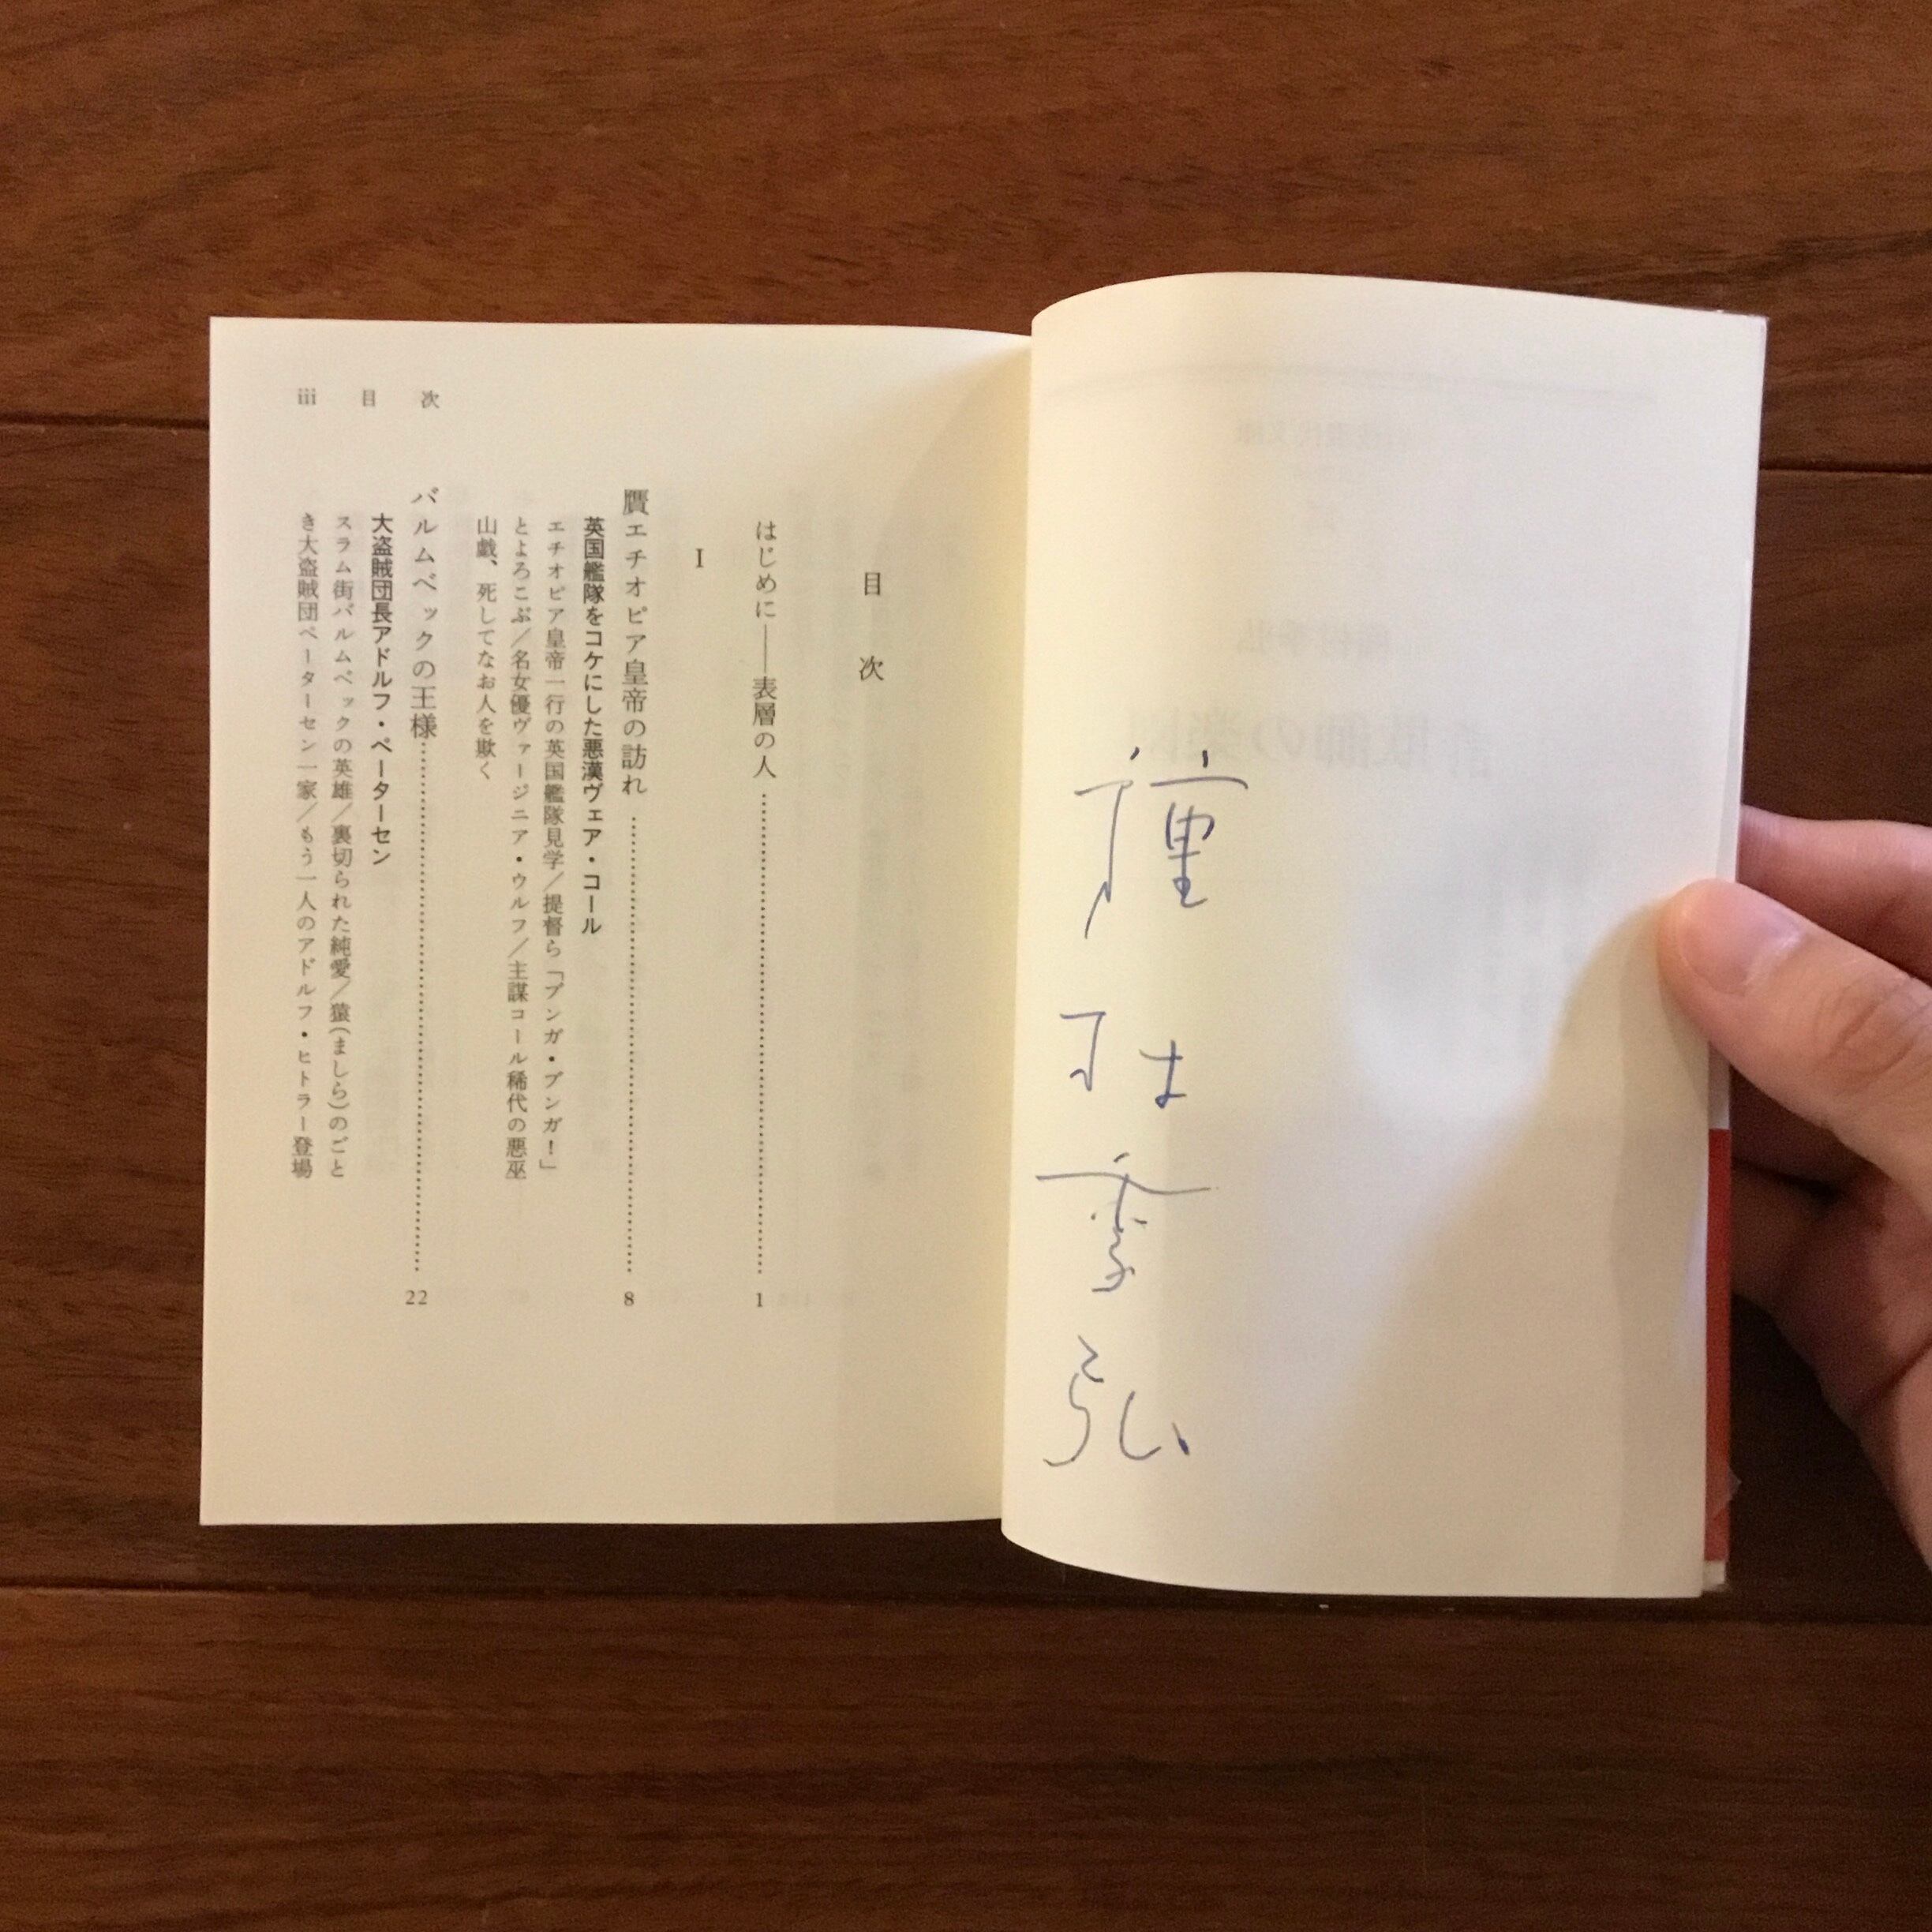 種村季弘
目次
はじめに――表層の人 1
I
贋エチオピア皇帝の訪れ 8
英国艦隊をコケにした悪漢ヴェア・コール
エチオピア皇帝一行の英国艦隊見学／提督ら「ブンガ・ブンガ！」
とよろこぶ／名女優ヴァージニア・ウルフ／主謀コール稀代の悪巫
山戯、死してなお人を欺く
バルムベックの王様 22
大盗賊団長アドルフ・ペーターセン
スラム街バルムベックの英雄／裏切られた純愛／猿(ましら)のごと
き大盗賊団ペーターセン一家／もう一人のアドルフ・ヒトラー登場
iii 目次